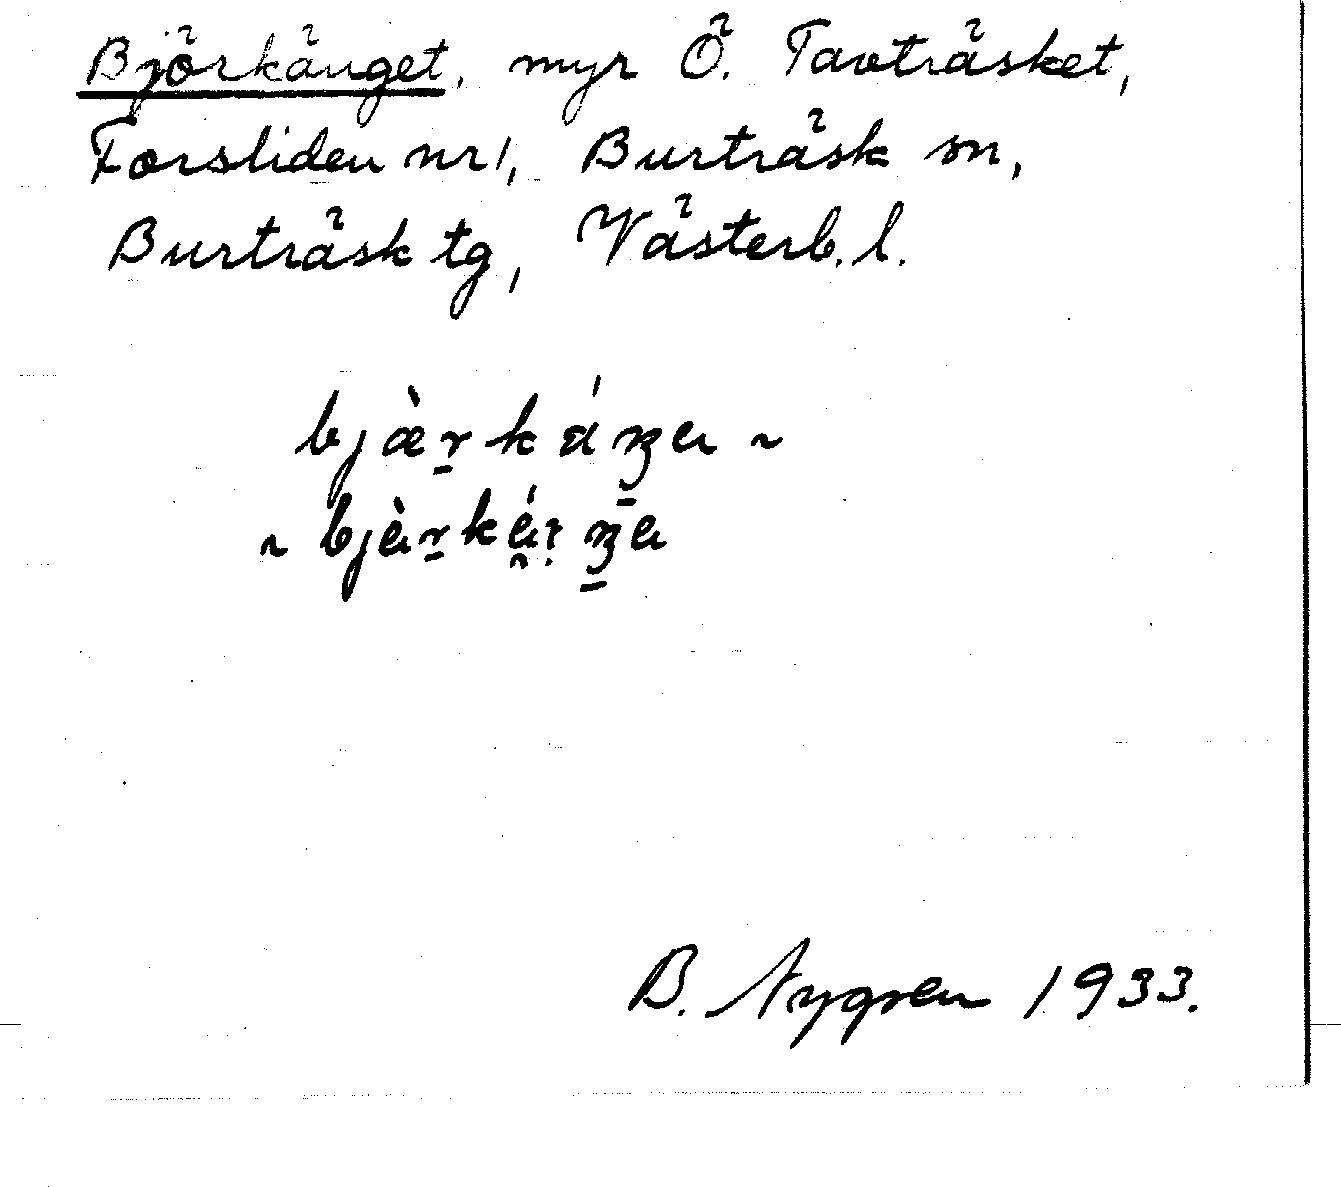 Björkänget, myr Ö. Tavträsket,
Forsliden nr 1, Burträsk sn,
Burträsk tg, Västerb. l.
B. Nygren 1933.